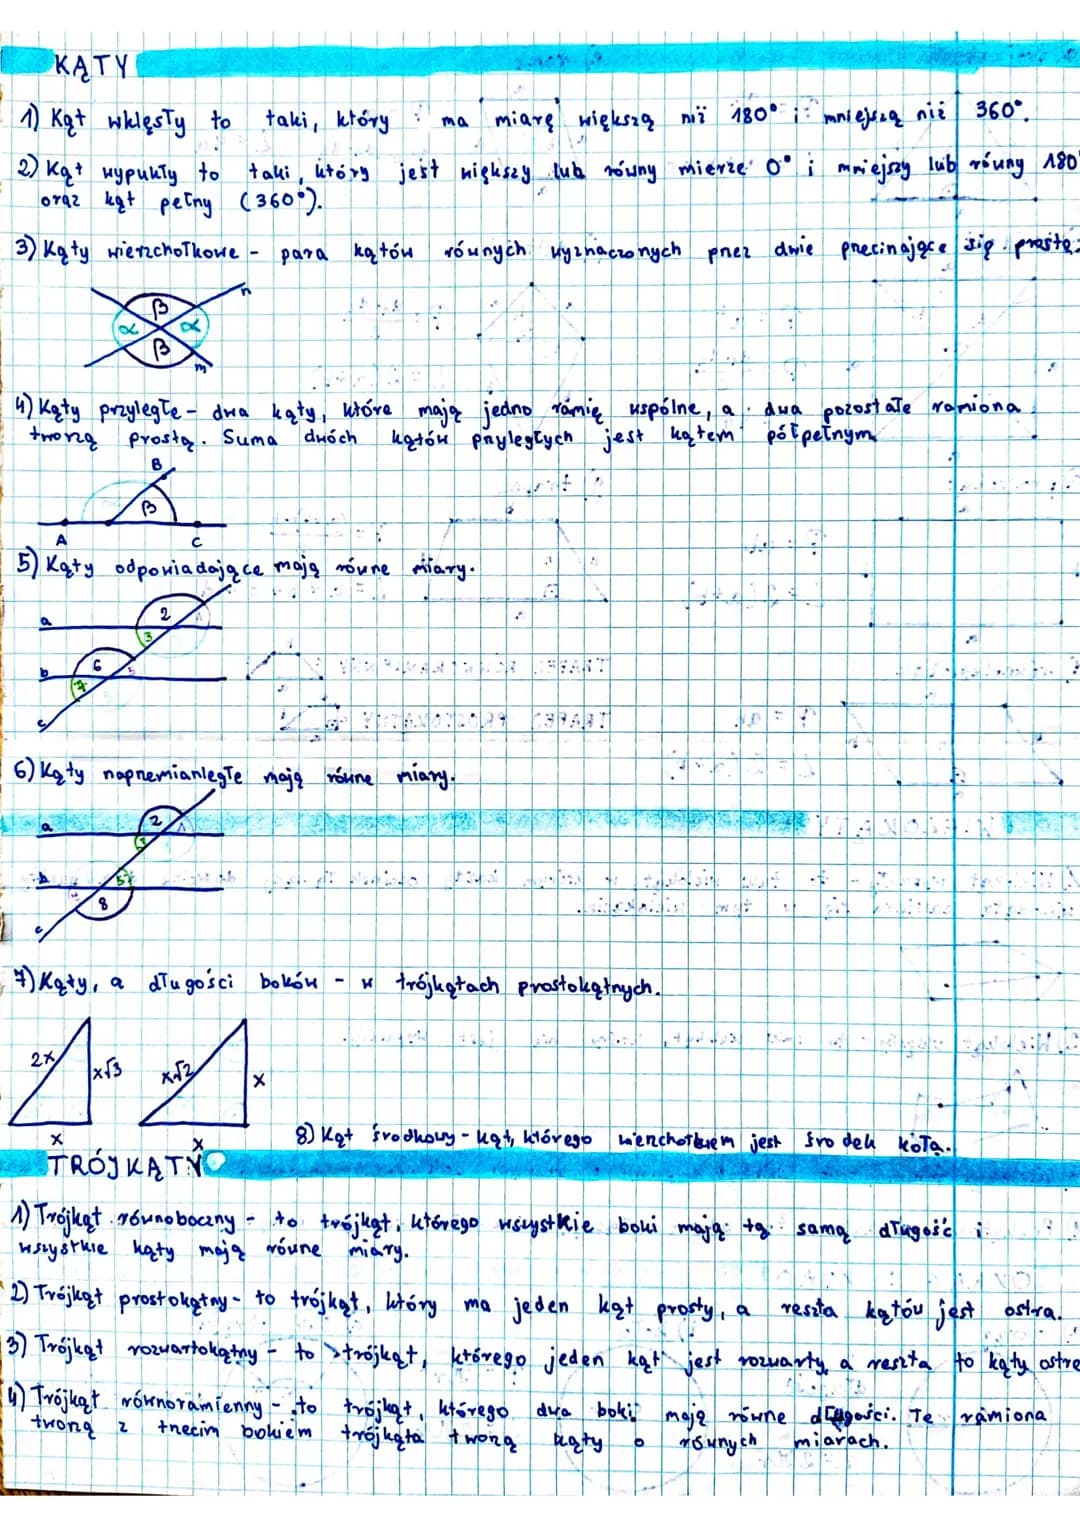 KĄTY
1) Kąt wklęsły to taki, który ma miarę większą niż 180° i mniejszą niż 360°.
2) Kąt wypukły to taki, który jest większy lub równy mierze 0° i mniejszy lub równy 180
oraz kąt pełny (360°).
3) Kąty wierzchołkowe - para kątów równych wyznaczonych przez dwie przecinające się proste.
β
α α
β
n
m
4) Kąty przyległe - dwa kąty, które mają jedno ramię wspólne, a dwa pozostałe ramiona
tworzą prostą. Suma dwóch kątów przyległych jest kątem półpełnym
B
β
A C
5) Kąty odpowiadające mają równe miary.
a 2 1
3
b 6 5
7
c
6) Kąty naprzemianległe mają równe miary.
a 2 1
3
b 5
8
c
7) Kąty, a długości boków - w trójkątach prostokątnych.
2x x√3 x√2 x
x x
8) Kąt środkowy - kąt, którego wierzchołkiem jest środek koła.
TRÓJKĄTY
1) Trójkąt równoboczny - to trójkąt, którego wszystkie boki mają tą samą długość i
wszystkie kąty mają równe miary.
2) Trójkąt prostokątny - to trójkąt, który ma jeden kąt prosty, a reszta kątów jest ostra.
3) Trójkąt rozwartokątny - to trójkąt, którego jeden kąt jest rozwarty a reszta to kąty ostre
4) Trójkąt równoramienny - to trójkąt, którego dwa boki mają równe długości. Te ramiona
tworzą z trzecim bokiem trójkąta tworzą kąty o równych miarach.